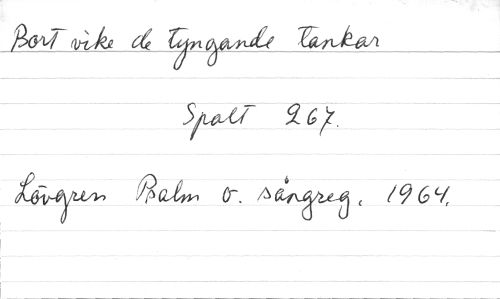 Bort vike de tyngande tankar
Spalt 267.
Lövgren Psalm o. sångreg. 1964.